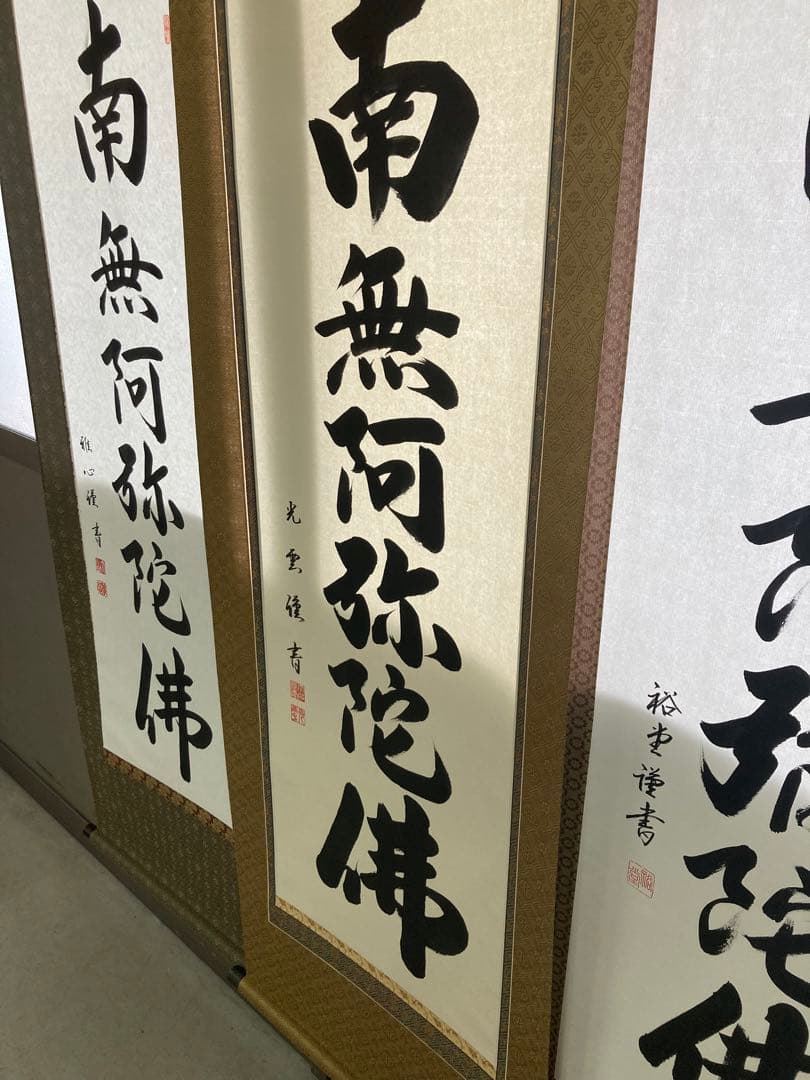 南無阿弥陀佛
雅心謹書
南無阿弥陀佛
光雲謹書
弥陀佛
裕堂謹書